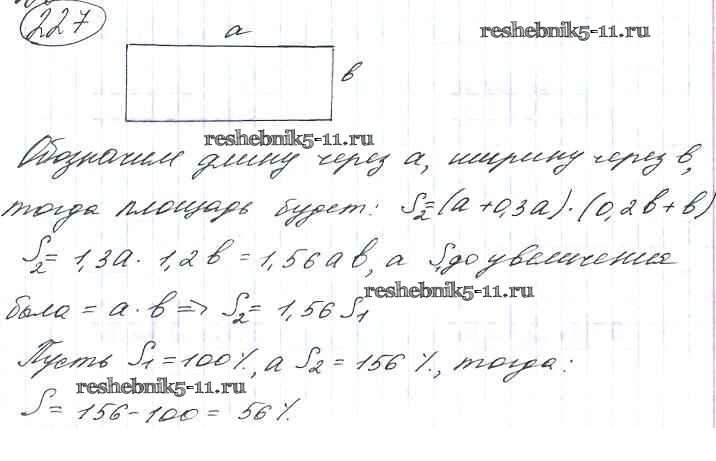 227
a
reshebnik5-11.ru
в
reshebnik5-11.ru
Обозначим длину через a, ширину через в,
тогда площадь будет: S₂=(a+0,3a)·(0,2в+в)
S₂=1,3a·1,2в=1,56aв, а S₁ до увеличения
была = a·в => S₂=1,56S₁
reshebnik5-11.ru
Пусть S₁=100%, а S₂=156%, тогда:
reshebnik5-11.ru
S=156-100=56%.